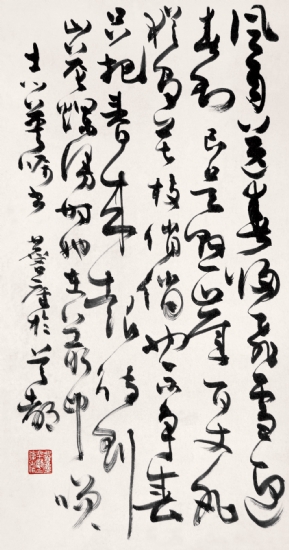 风雨送春归飛雪迎
春到已是悬崖百丈冰
犹有花枝俏俏也不争春
只把春来报待到
山花烂漫时她在丛中笑
书 於首都